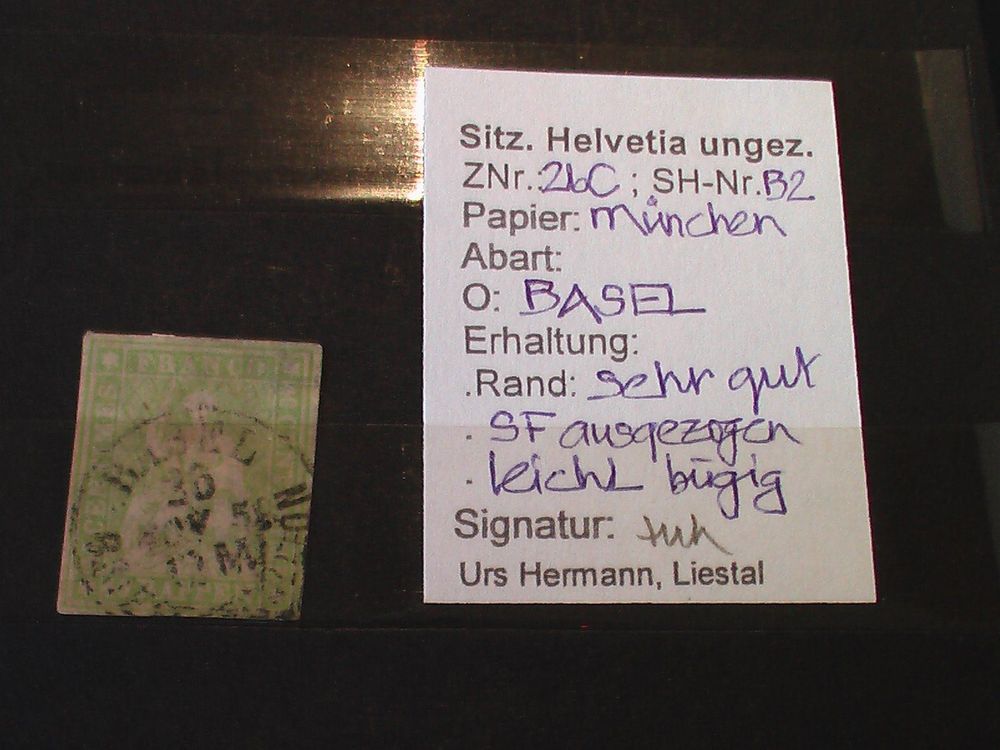 Sitz. Helvetia ungez.
ZNr.:26C ; SH-Nr.B2
Papier: München
Abart:
O: BASEL
Erhaltung:
.Rand: sehr gut
. SF ausgezogen
. leicht bügig
Signatur:
Urs Hermann, Liestal
FRANCO
BASEL